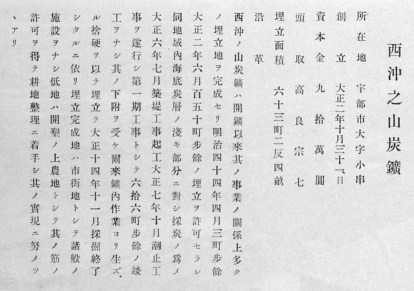 西沖之山炭鑛
所在地 宇部市大字小串
創立 大正二年十月三十一日
資本金 九拾萬圓
頭取 高良宗七
埋立面積 六十三町二反四畝
沿革
西沖ノ山炭鑛ハ開鑛以來其ノ事業ノ關係上多ク
ノ埋立地ヲ完成セリ明治四十四年四月三町步餘
大正二年六月百五十町步餘ノ埋立ヲ許可セラレ
同地域內海底炭層ノ淺キ部分ニ對シ採炭ノ爲メ
大正六年七月築堤工事起工大正七年十月潮止工
事ヲ遂行シ第一期工事トシテ六拾六町步餘ノ竣
工ヲナシ其ノ下附ヲ受ケ爾來鑛內作業ヨリ生ズ
ル捨硬ヲ以テ埋立ヲ大正十四年十一月採掘終了
シタルニ依リ埋立完成地ハ市街地トシテ諸般ノ
施設ヲナシ低地ハ開墾ノ上農地トシテ其ノ筋ノ
許可ヲ得テ耕地整理ニ着手シ其ノ實現ニ努メツ
ヽアリ